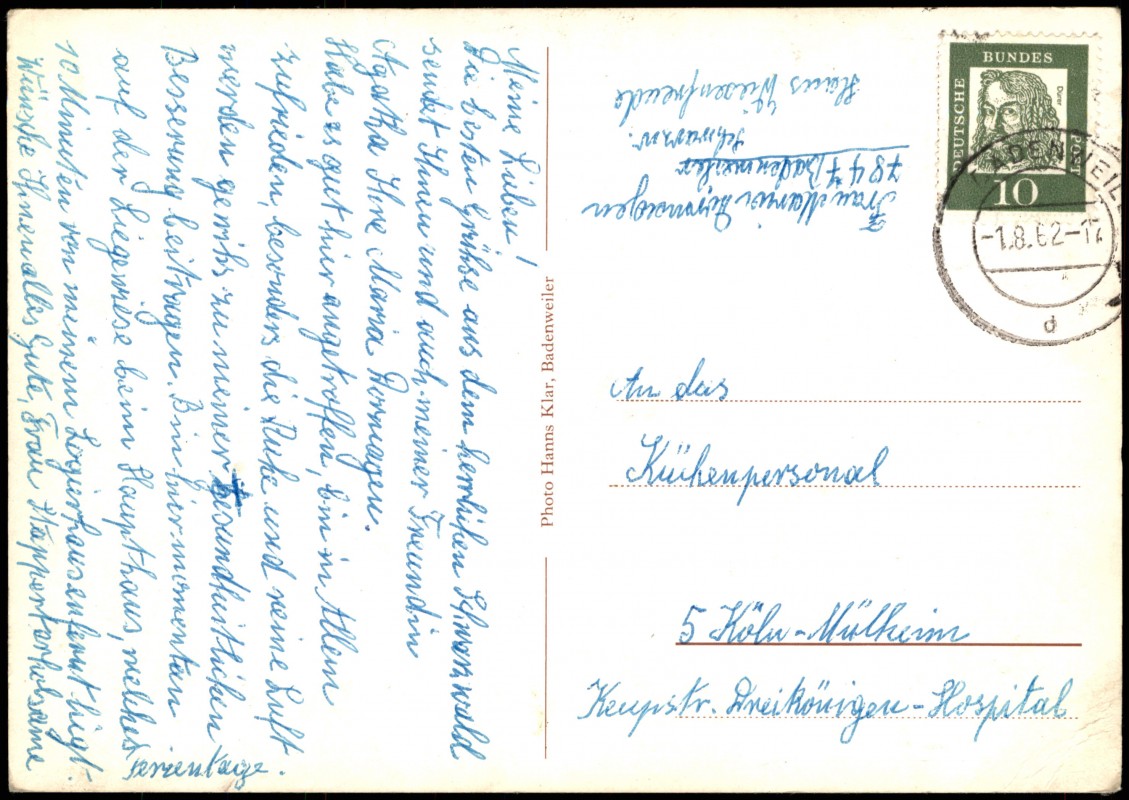 Meine Lieben!
Die besten Grühse aus dem herrlichen Schwarzwald
sendet Ihnen und auch meiner Freundin
Agatha Ihre Maria Dormagen.
Habe es gut hier angetroffen, bin in Allem
zufrieden, besonders die Ruhe und reine Luft
werden gewihs zu meiner gesundheitlichen
Besserung beitragen. Bin hier momentan
auf der Liegewiese beim Haupthaus, welches
10 Minuten von meinem Logierhaus entfernt liegt.
Wünsche Ihnen alles Gute, Frau erholsame
Ferientage.
Frau Maria Dormagen
7847 Badenweiler
Schwarzw.
Haus Wiesenfreude
Photo Hanns Klar, Badenweiler
DEUTSCHE
BUNDES
POST
Dürer
10
BADENWEILER
-1.8.62-17
d
An das
Küchenpersonal
5 Köln-Mülheim
Keupstr. Dreikönigen-Hospital